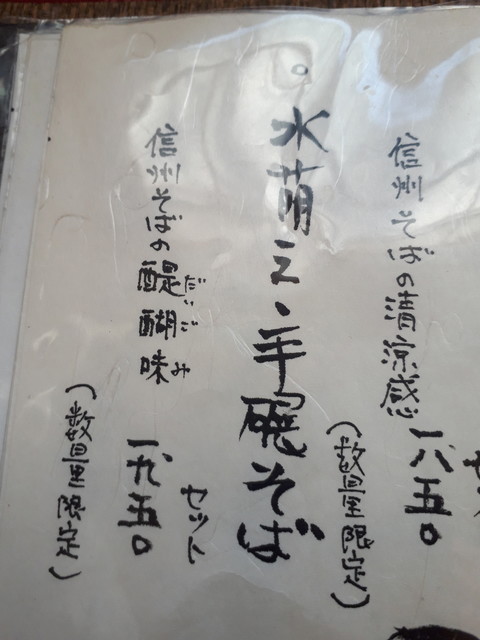 信州そばの清涼感
一八五〇
(数量限定)
水萌え・手碾そば
セット
信州そばの醍醐味
だいごみ
一九五〇
(数量限定)